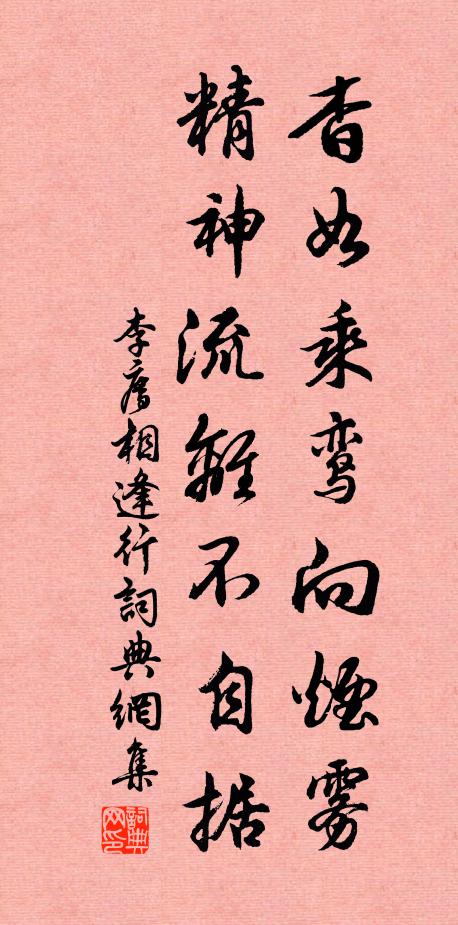 杳如乘鸾向煙雾
精神流離不自据
李廌相逢行詞典網集
詞典
网印